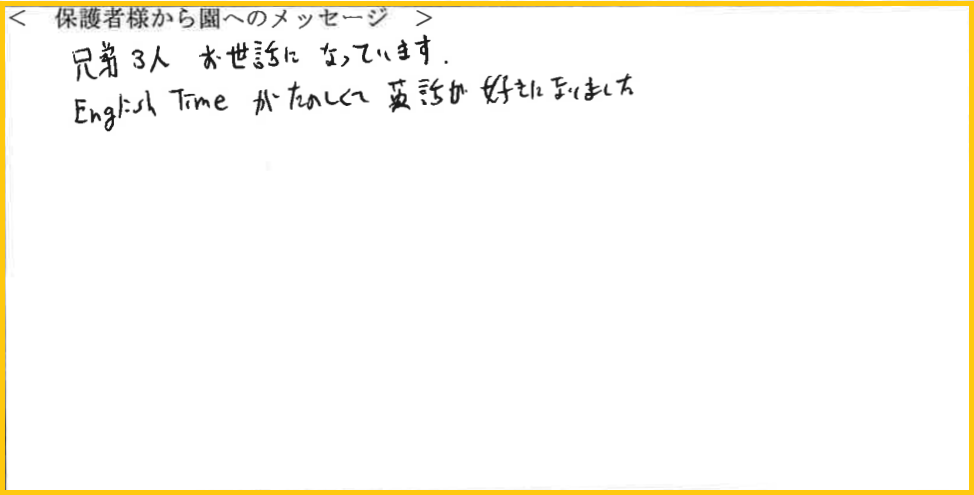 ＜　保護者様から園へのメッセージ　＞
兄弟3人 お世話に なっています.
English Time が たのしくて 英語が 好きになりました